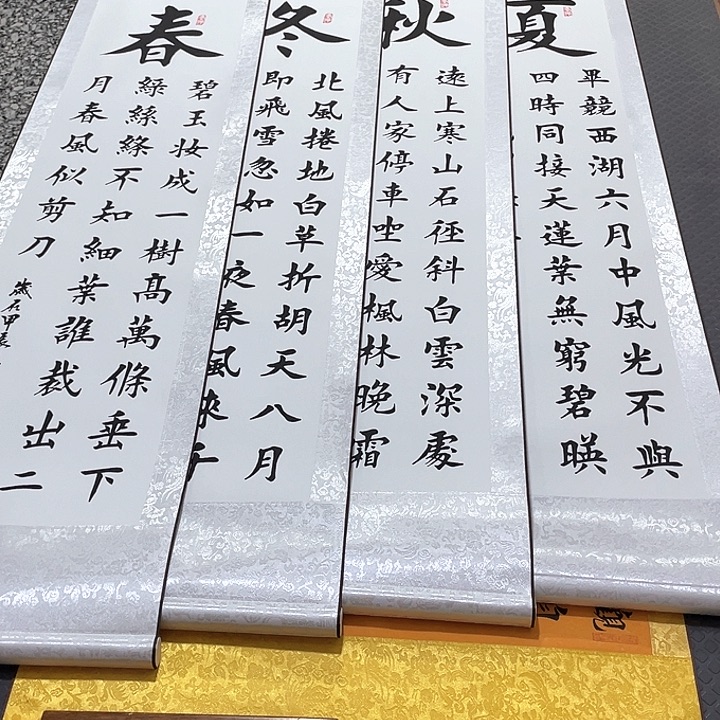 夏
畢競西湖六月中風光不與
四時同接天蓮葉無窮碧暎
秋
遠上寒山石徑斜白雲深處
有人家停車坐愛楓林晚霜
冬
北風捲地白草折胡天八月
即飛雪忽如一夜春風來千
春
碧玉妆成一樹高萬條垂下
綠絲絛不知細葉誰裁出二
月春風似剪刀
歲在甲辰